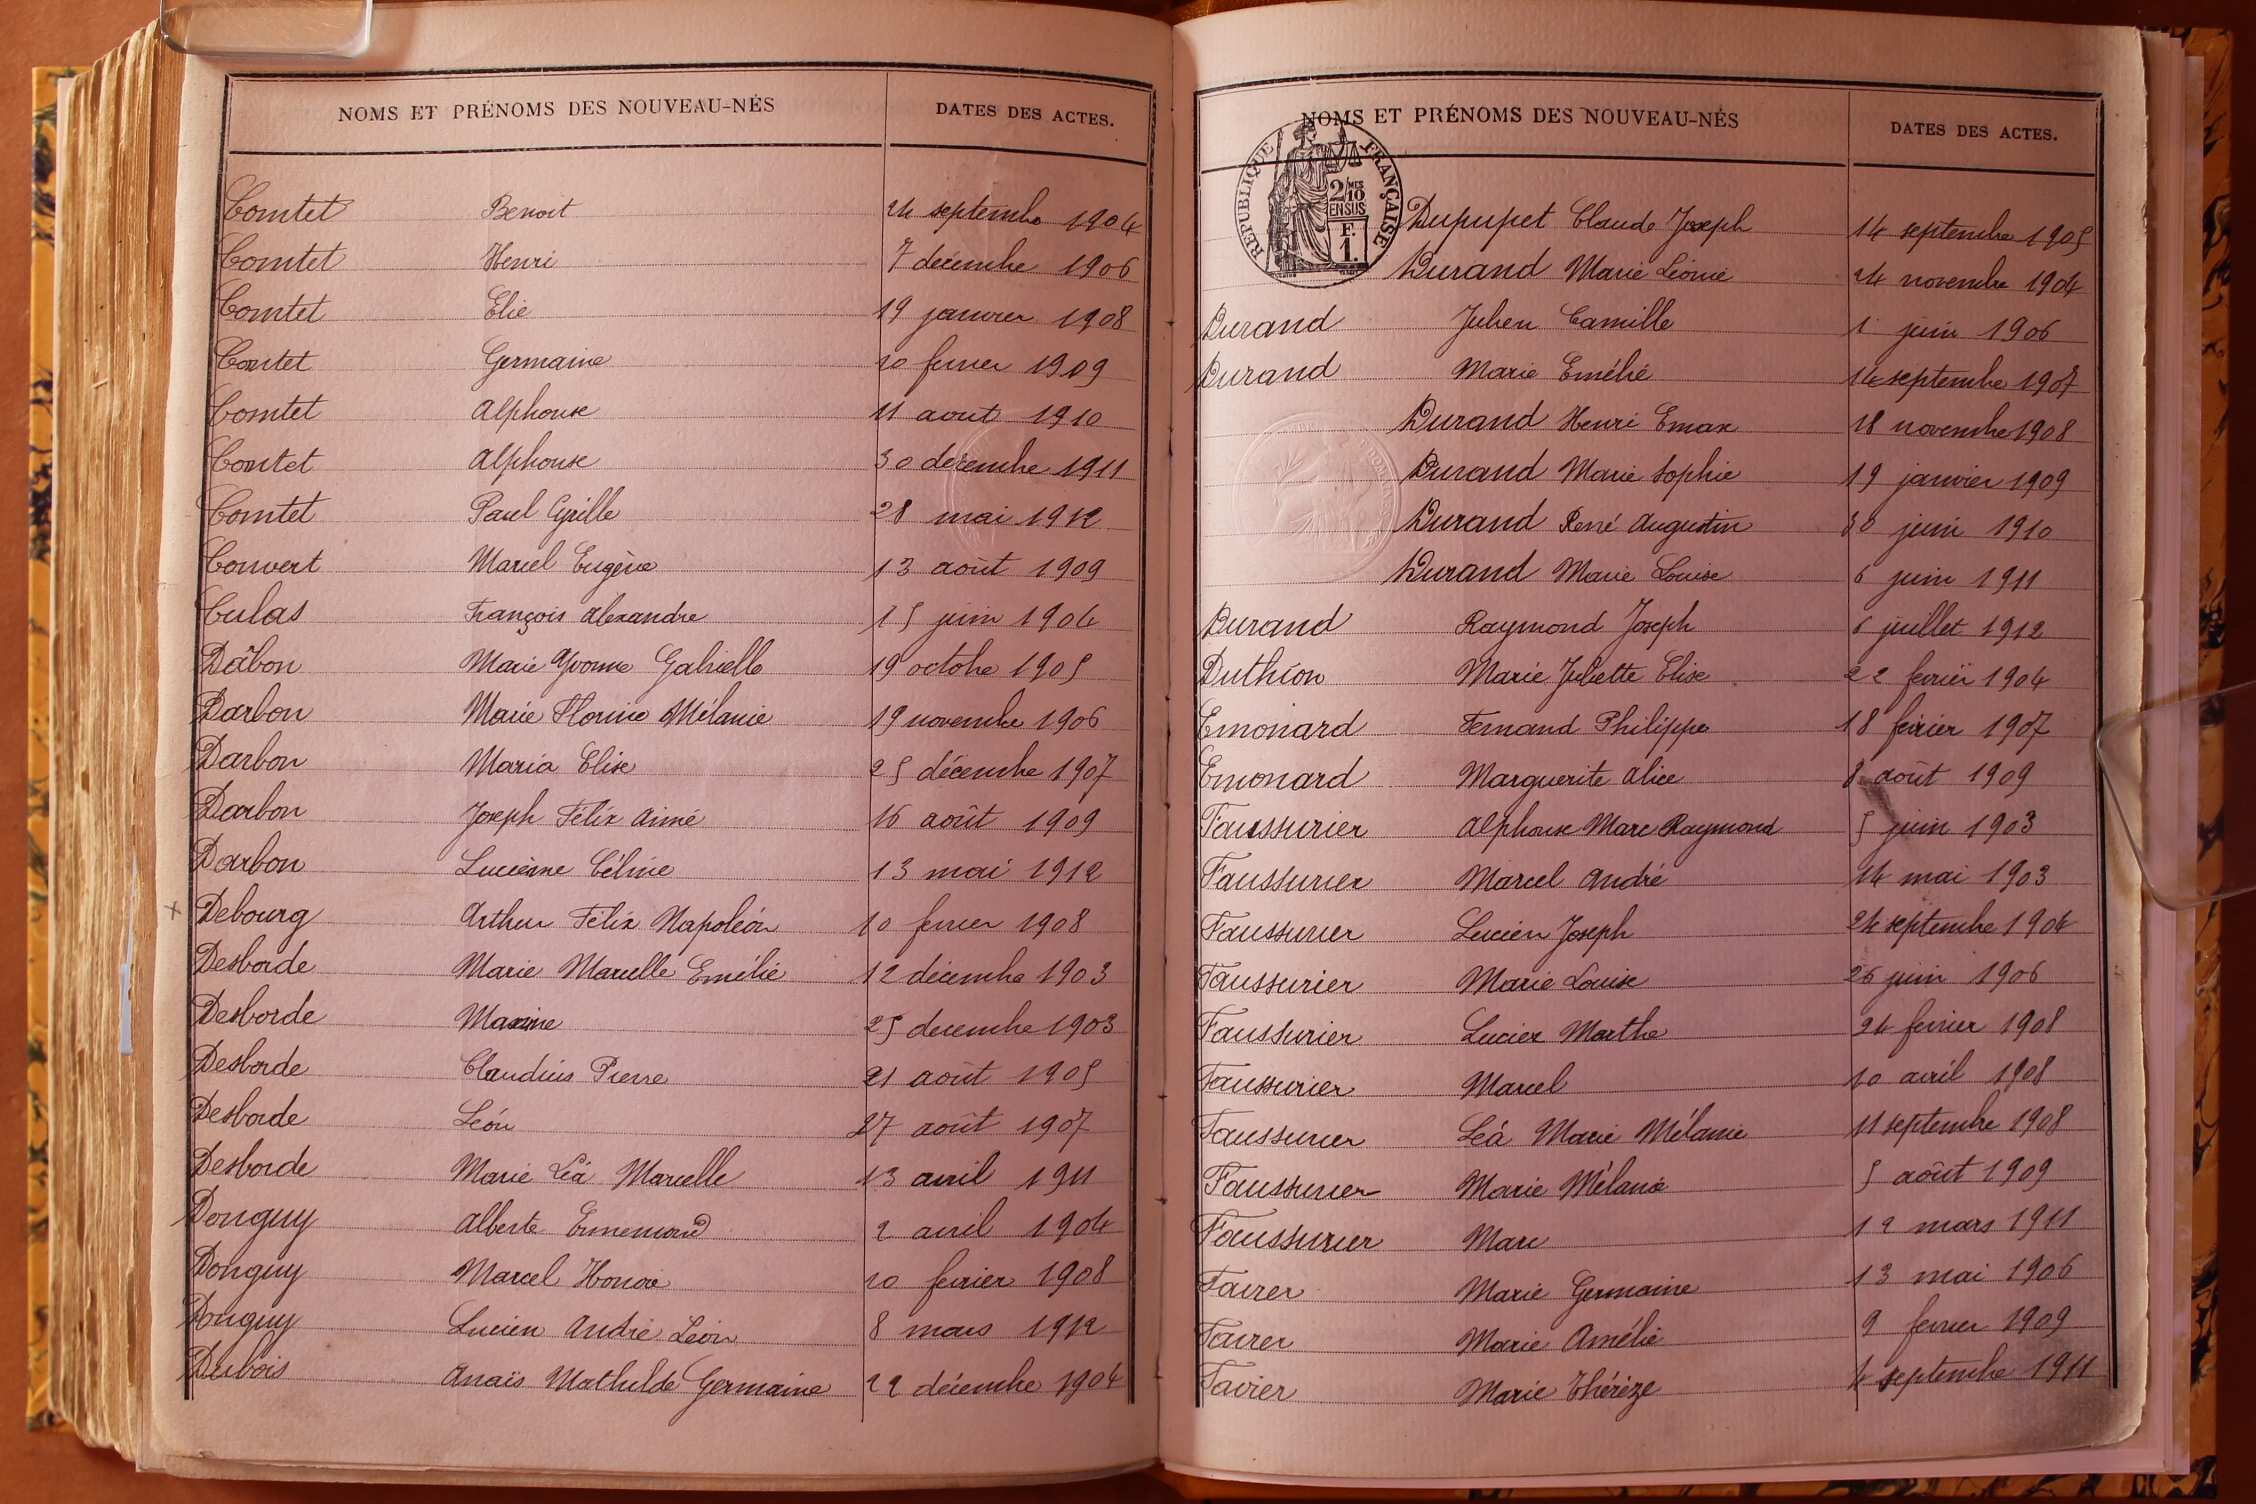 NOMS ET PRÉNOMS DES NOUVEAU-NÉS DATES DES ACTES.
Comtet Benoit 24 septembre 1904
Comtet Henri 7 décembre 1906
Comtet Elie 19 janvier 1908
Comtet Germaine 20 fevrier 1909
Comtet Alphonse 11 aout 1910
Comtet Alphonse 30 decembre 1911
Comtet Paul Cyrille 28 mai 1912
Convert Marcel Eugène 13 août 1909
Culas François Alexandre 15 juin 1904
Darbon Marie Yvonne Gabrielle 19 octobre 1905
Darbon Marie Florine Mélanie 19 novembre 1906
Darbon Maria Elise 25 décembre 1907
Darbon Joseph Félix Aimé 16 août 1909
Darbon Lucienne Céline 13 mai 1912
Debourg Arthur Félix Napoléon 10 fevrier 1908
Desborde Marie Marcelle Emélie 12 décembre 1903
Desborde Maxime 25 decembre 1903
Desborde Claudius Pierre 21 août 1905
Desborde Léon 27 août 1907
Desborde Marie Léa Marcelle 13 avril 1911
Donguy Alberte Ennemond 2 avril 1904
Donguy Marcel Honoré 20 fevrier 1908
Donguy Lucien André Léon 8 mars 1912
Dubois Anaïs Mathilde Germaine 22 décembre 1904
NOMS ET PRÉNOMS DES NOUVEAU-NÉS DATES DES ACTES.
RÉPUBLIQUE FRANÇAISE
2/10 MES
EN SUS
F.
1.
Dupupet Claude Joseph 14 septembre 1905
Durand Marie Léonie 24 novembre 1904
Durand Julien Camille 1 juin 1906
Durand Marie Emélie 14 septembre 1907
Durand Henri Emax 28 novembre 1908
Durand Marie Sophie 19 janvier 1909
Durand René Augustin 30 juin 1910
Durand Marie Louise 6 juin 1911
Durand Raymond Joseph 6 juillet 1912
Duthion Marie Juliette Elise 22 fevrier 1904
Emonard Fernand Philippe 18 février 1907
Emonard Marguerite Alice 8 août 1909
Faussurier Alphonse Marc Raymond 5 juin 1903
Faussurier Marcel André 14 mai 1903
Faussurier Lucien Joseph 24 septembre 1904
Faussurier Marie Louise 26 juin 1906
Faussurier Lucien Marthe 24 fevrier 1908
Faussurier Marcel 10 avril 1908
Faussurier Léa Marie Mélanie 11 septembre 1908
Faussurier Marie Mélanie 5 août 1909
Faussurier Marc 12 mars 1911
Favier Marie Germaine 13 mai 1906
Favier Marie Amélie 9 fevrier 1909
Favier Marie Thérèze 4 septembre 1911